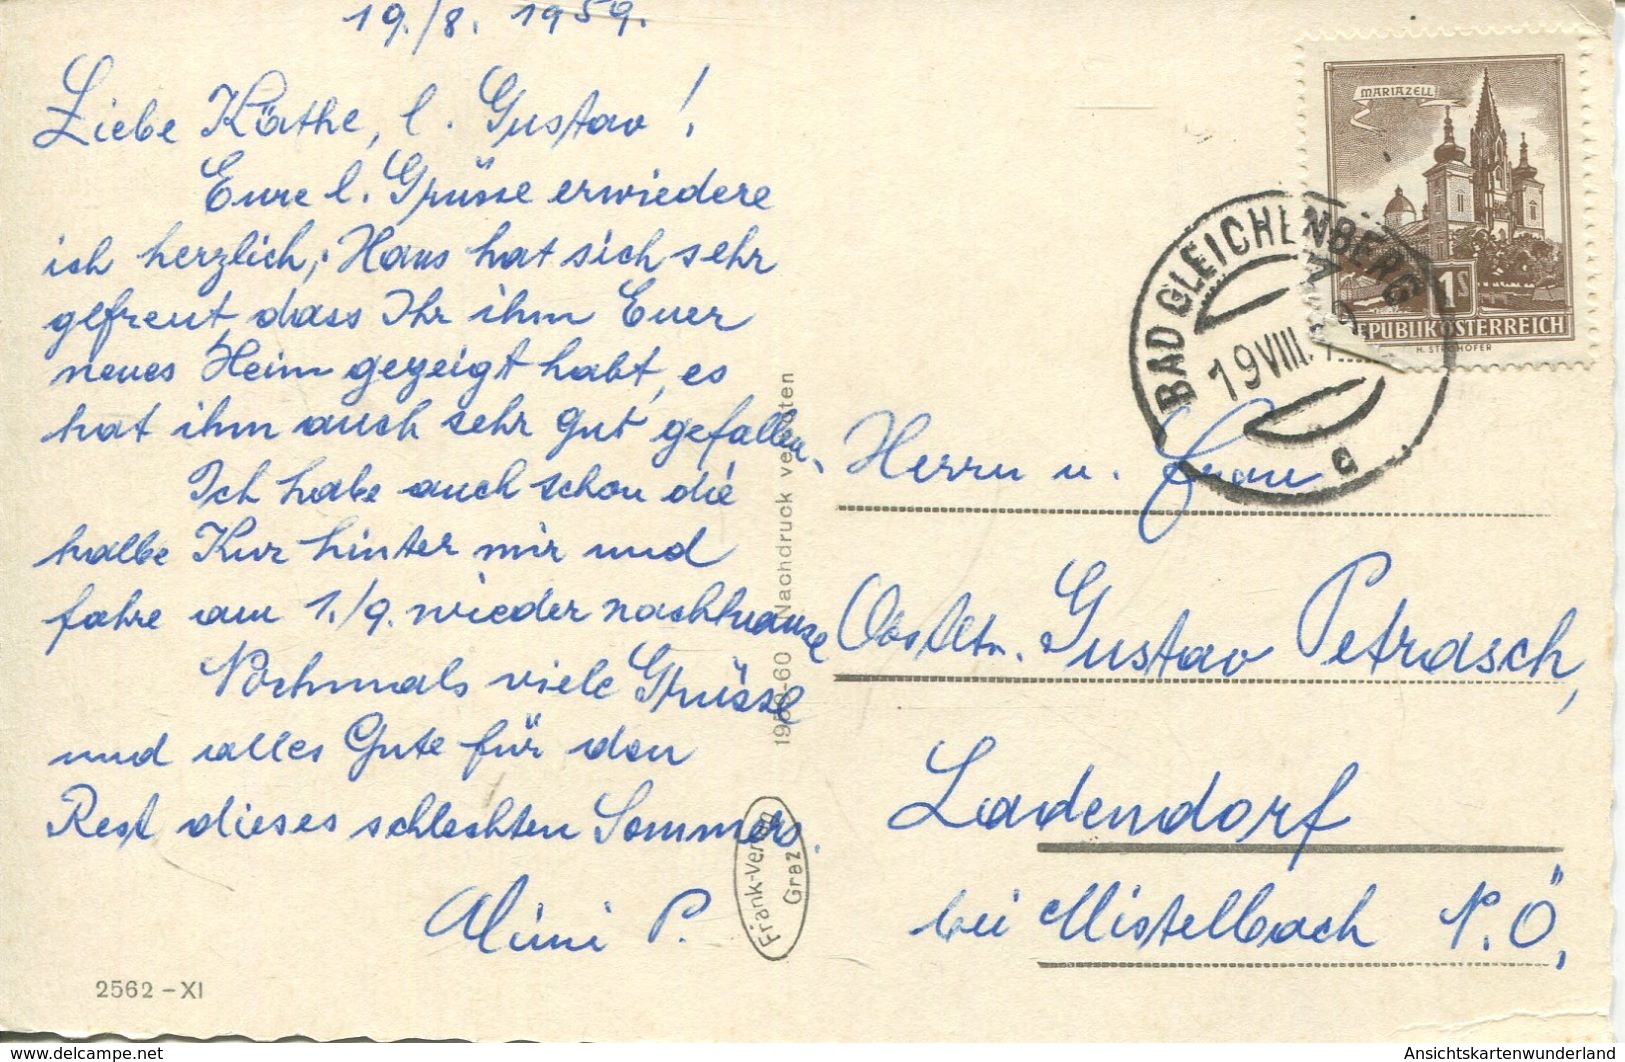 19./8. 1959.
Liebe Käthe, l. Gustav!
Eure l. Grüsse erwiedere
ich herzlich; Hans hat sich sehr
gefreut, dass Ihr ihm Euer
neues Heim gezeigt habt, es
hat ihm auch sehr gut gefallen.
Ich habe auch schon die
halbe Kur hinter mir und
fahre am 1./9. wieder nachhause
Nochmals viele Grüsse
und alles Gute für den
Rest dieses schlechten Sommers.
Mimi P.
2562 - XI
1959-60 Nachdruck verboten
Frank-Verlag
Graz
MARIAZELL
1S
REPUBLIK ÖSTERREICH
BAD GLEICHENBERG
19 VIII.
a
Herrn u. Frau
Obstltn. Gustav Petrasch,
Ladendorf
bei Mistelbach N.Ö,
www.delcampe.net
Ansichtskartenwunderland